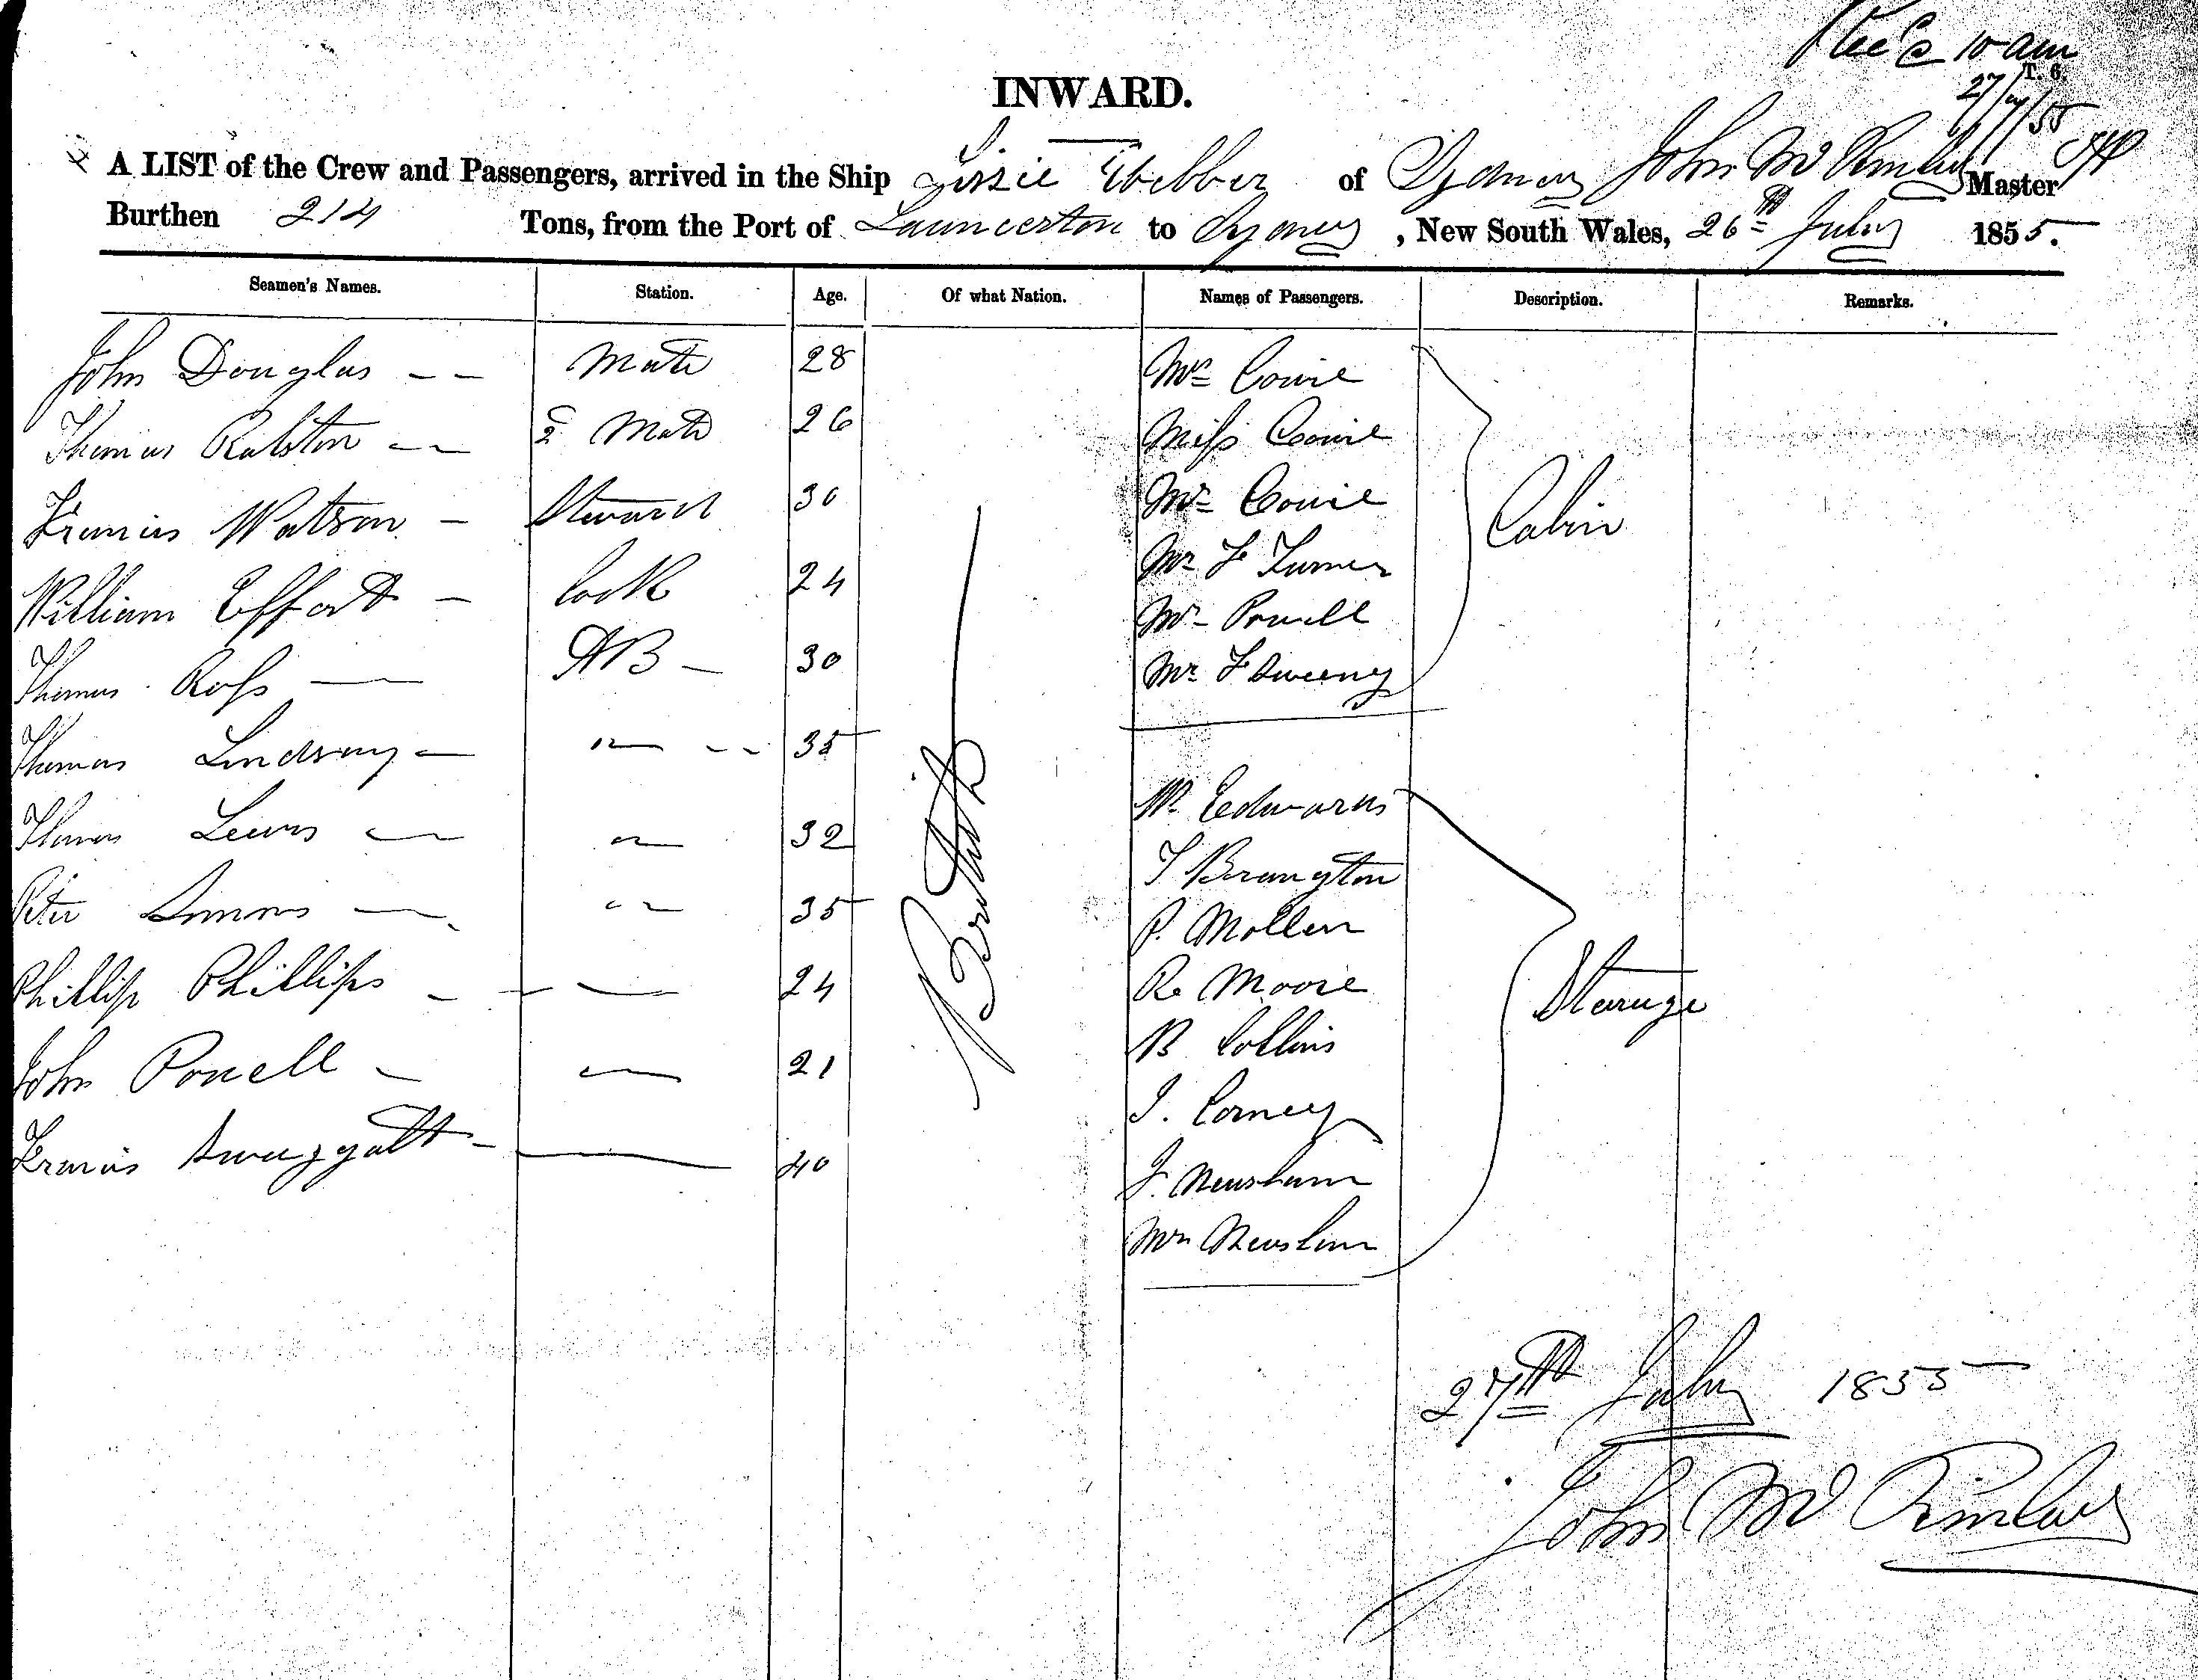 10 am
T. 6.
27/7/55
INWARD.
A LIST of the Crew and Passengers, arrived in the Ship Lizzie Webber of Sydney John Mc Master
Burthen 214 Tons, from the Port of Launceston to Sydney, New South Wales, 26th July 1855.
Seamen's Names. Station. Age. Of what Nation. Names of Passengers. Description. Remarks.
John Douglas -- Mate 28 Mrs Cowie
Thomas Ralston — 2 Mate 26 Miss Cowie
Francis Watson - Steward 30 Mr Cowie
Cabin
William Effort - Cook 24 Mr F Turner
Mr Powell
Thomas Ross — AB - 30 Mr F Sweeny
Thomas Lindsay — 35
British
Thomas Lewis — 32 W. Edwards
Peter Simms — 35 T Berrington
P. Mollen
Phillip Phillips - 24 R. Moore
Steruge
John Powell - 21 B Collins
J. Corney
Francis 40 J. Newsham
Mrs Newsham
27th July 1855
John Mc